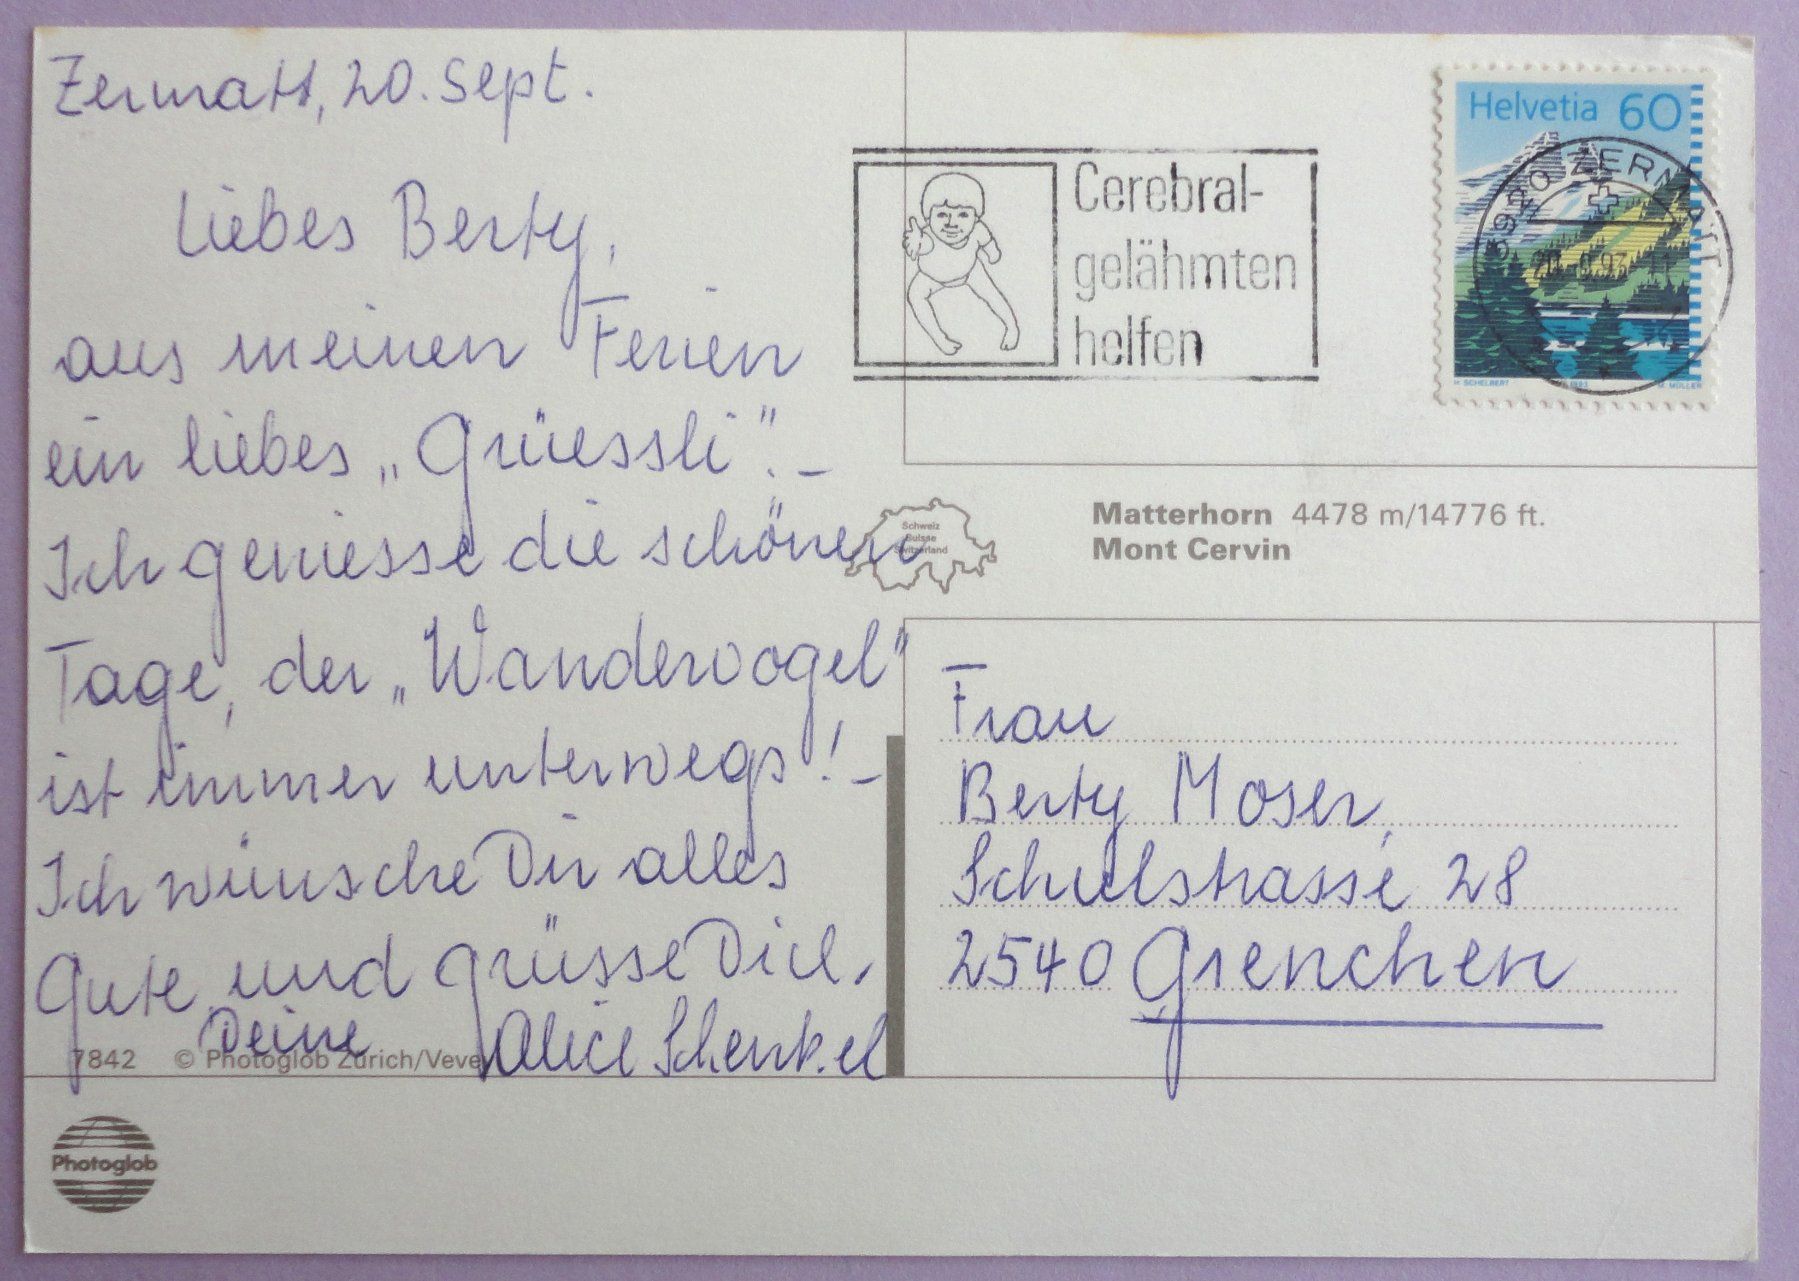 Zermatt, 20. Sept.
Liebes Berty,
aus meinen Ferien
ein liebes „Grüessli". –
Ich geniesse die schönen
Tage, der „Wandervogel"
ist immer unterwegs! –
Ich wünsche Dir alles
Gute und grüsse Dich,
Deine Alice Schenkel
7842 © Photoglob Zürich/Vevey
Photoglob
Cerebral-
gelähmten
helfen
Helvetia 60
3920 ZERMATT
20.9.93
H. SCHELBERT 1993 M. MÜLLER
Schweiz
Suisse
Switzerland
Matterhorn 4478 m/14776 ft.
Mont Cervin
Frau
Berty Moser,
Schulstrasse 28
2540 Grenchen